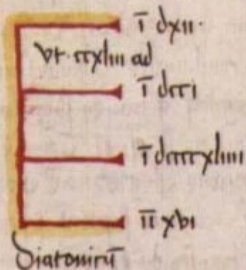 ī dxii·
vt·ccxliii ad
ī dcci
ī dccccxliiii
īī xvi
diatonicū